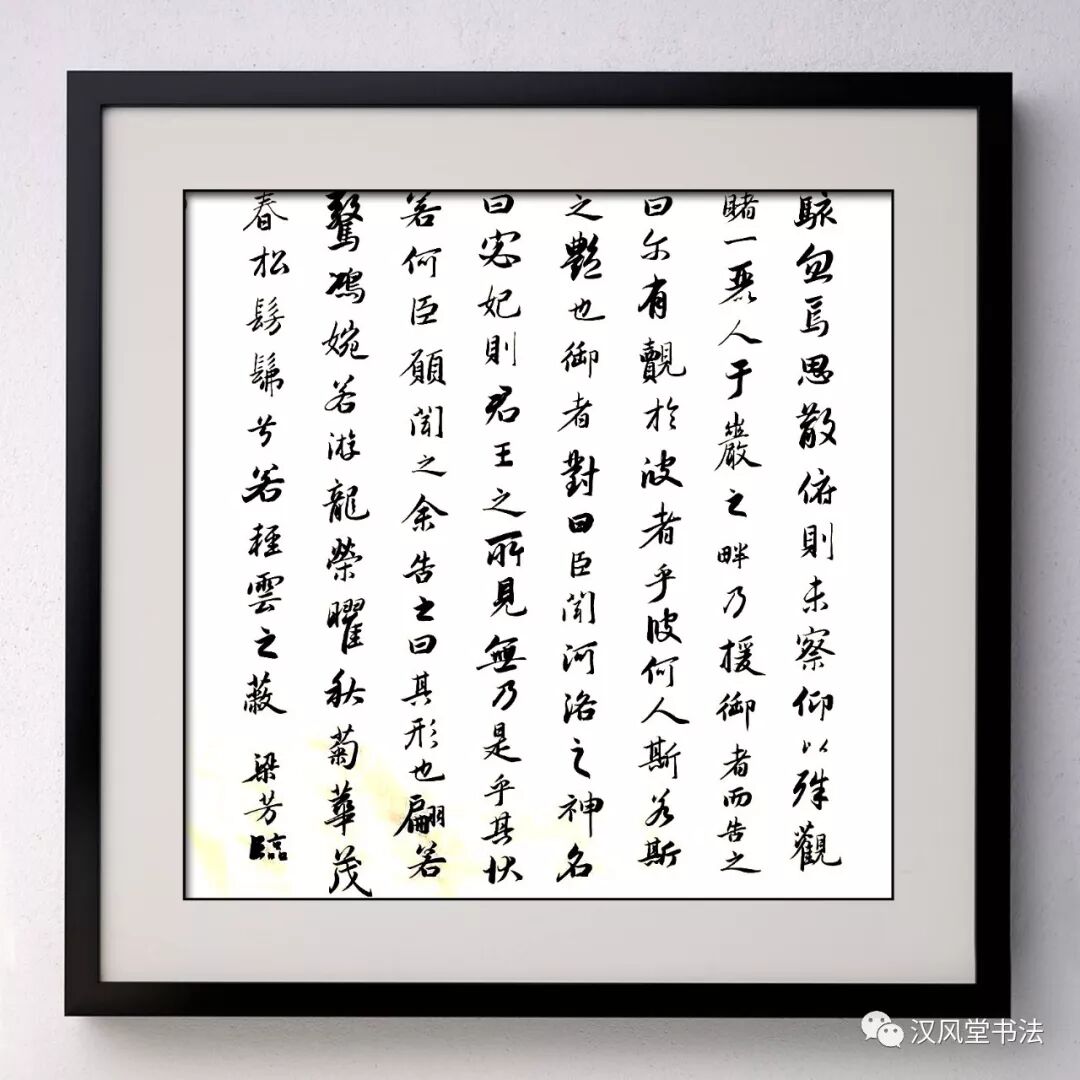 駭忽焉思散俯則未察仰以殊觀
睹一麗人于巖之畔乃援御者而告之
曰尔有觌於彼者乎彼何人斯若斯
之艷也御者對曰臣聞河洛之神名
曰宓妃則君王之所見無乃是乎其狀
若何臣願聞之余告之曰其形也翩若
驚鴻婉若游龍榮曜秋菊華茂
春松髣髴兮若輕雲之蔽
梁芳臨
汉风堂书法